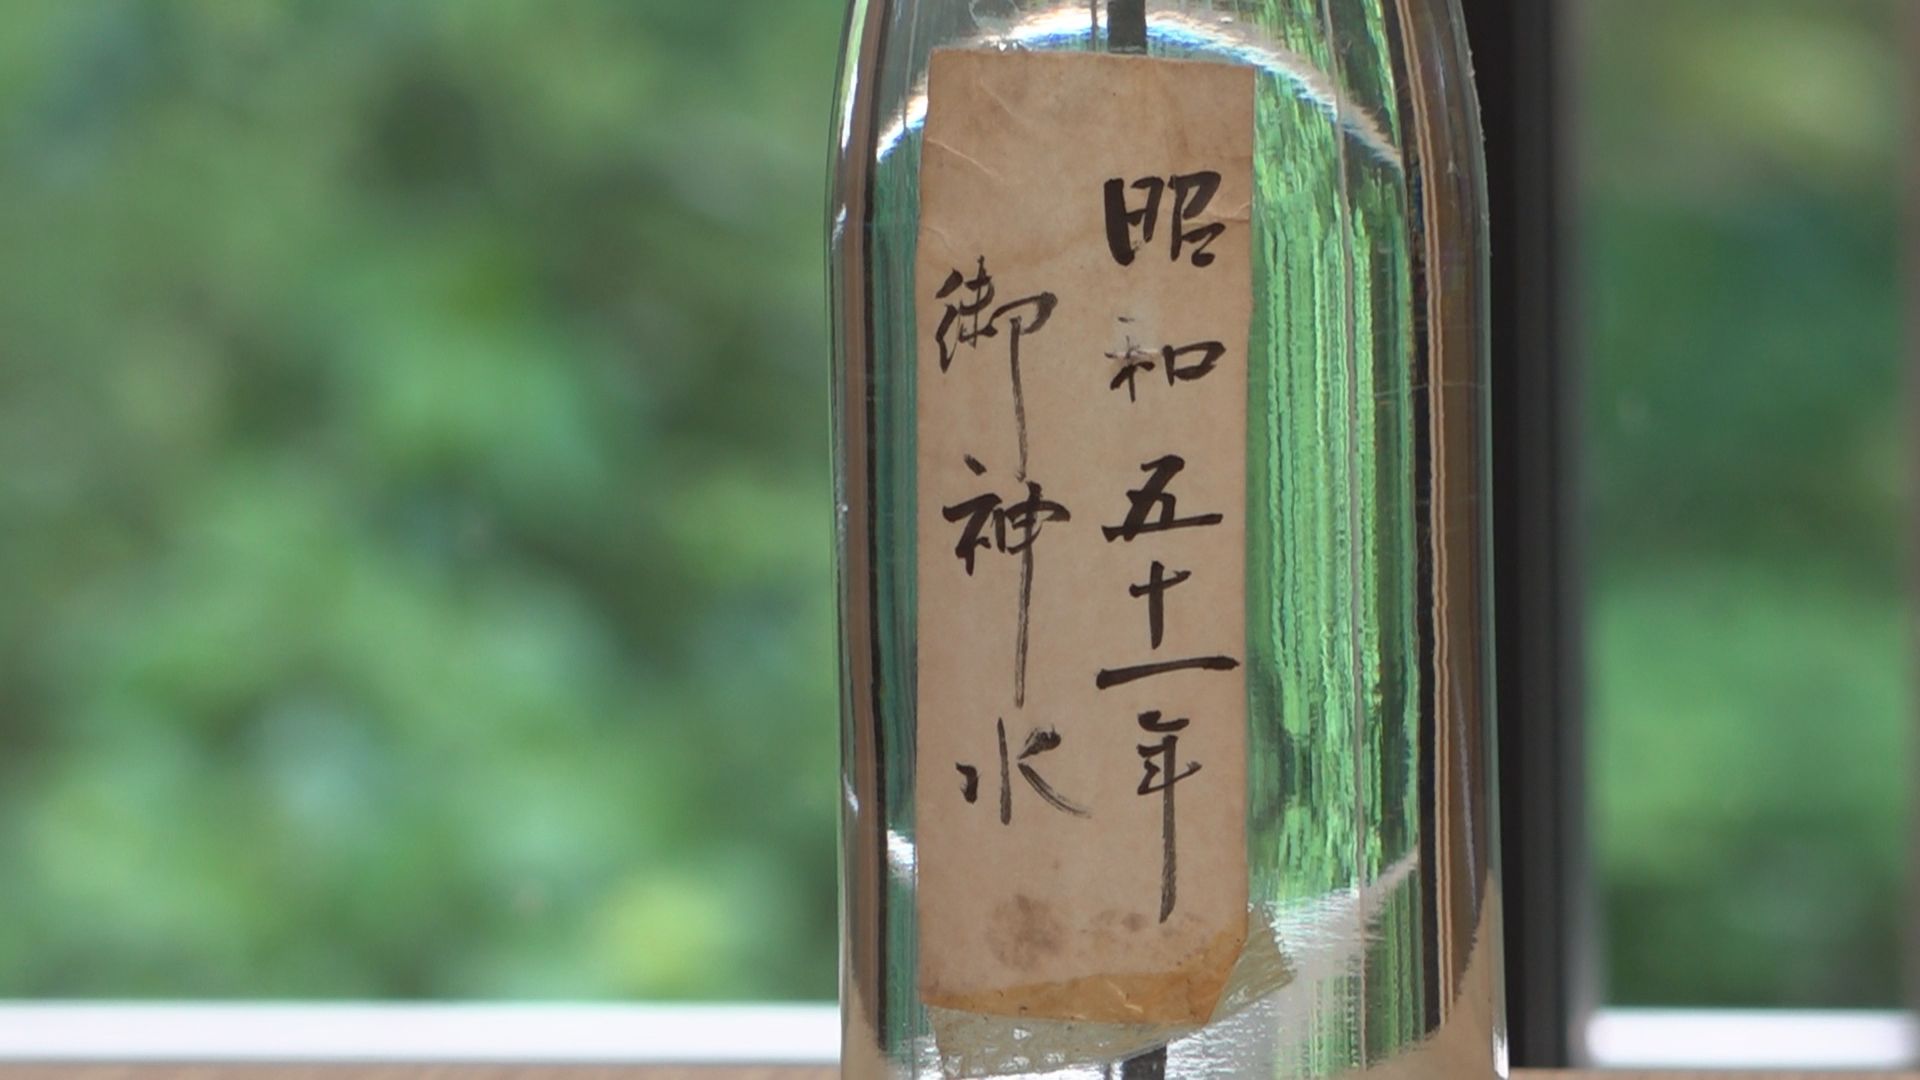 昭和五十一年
御神水